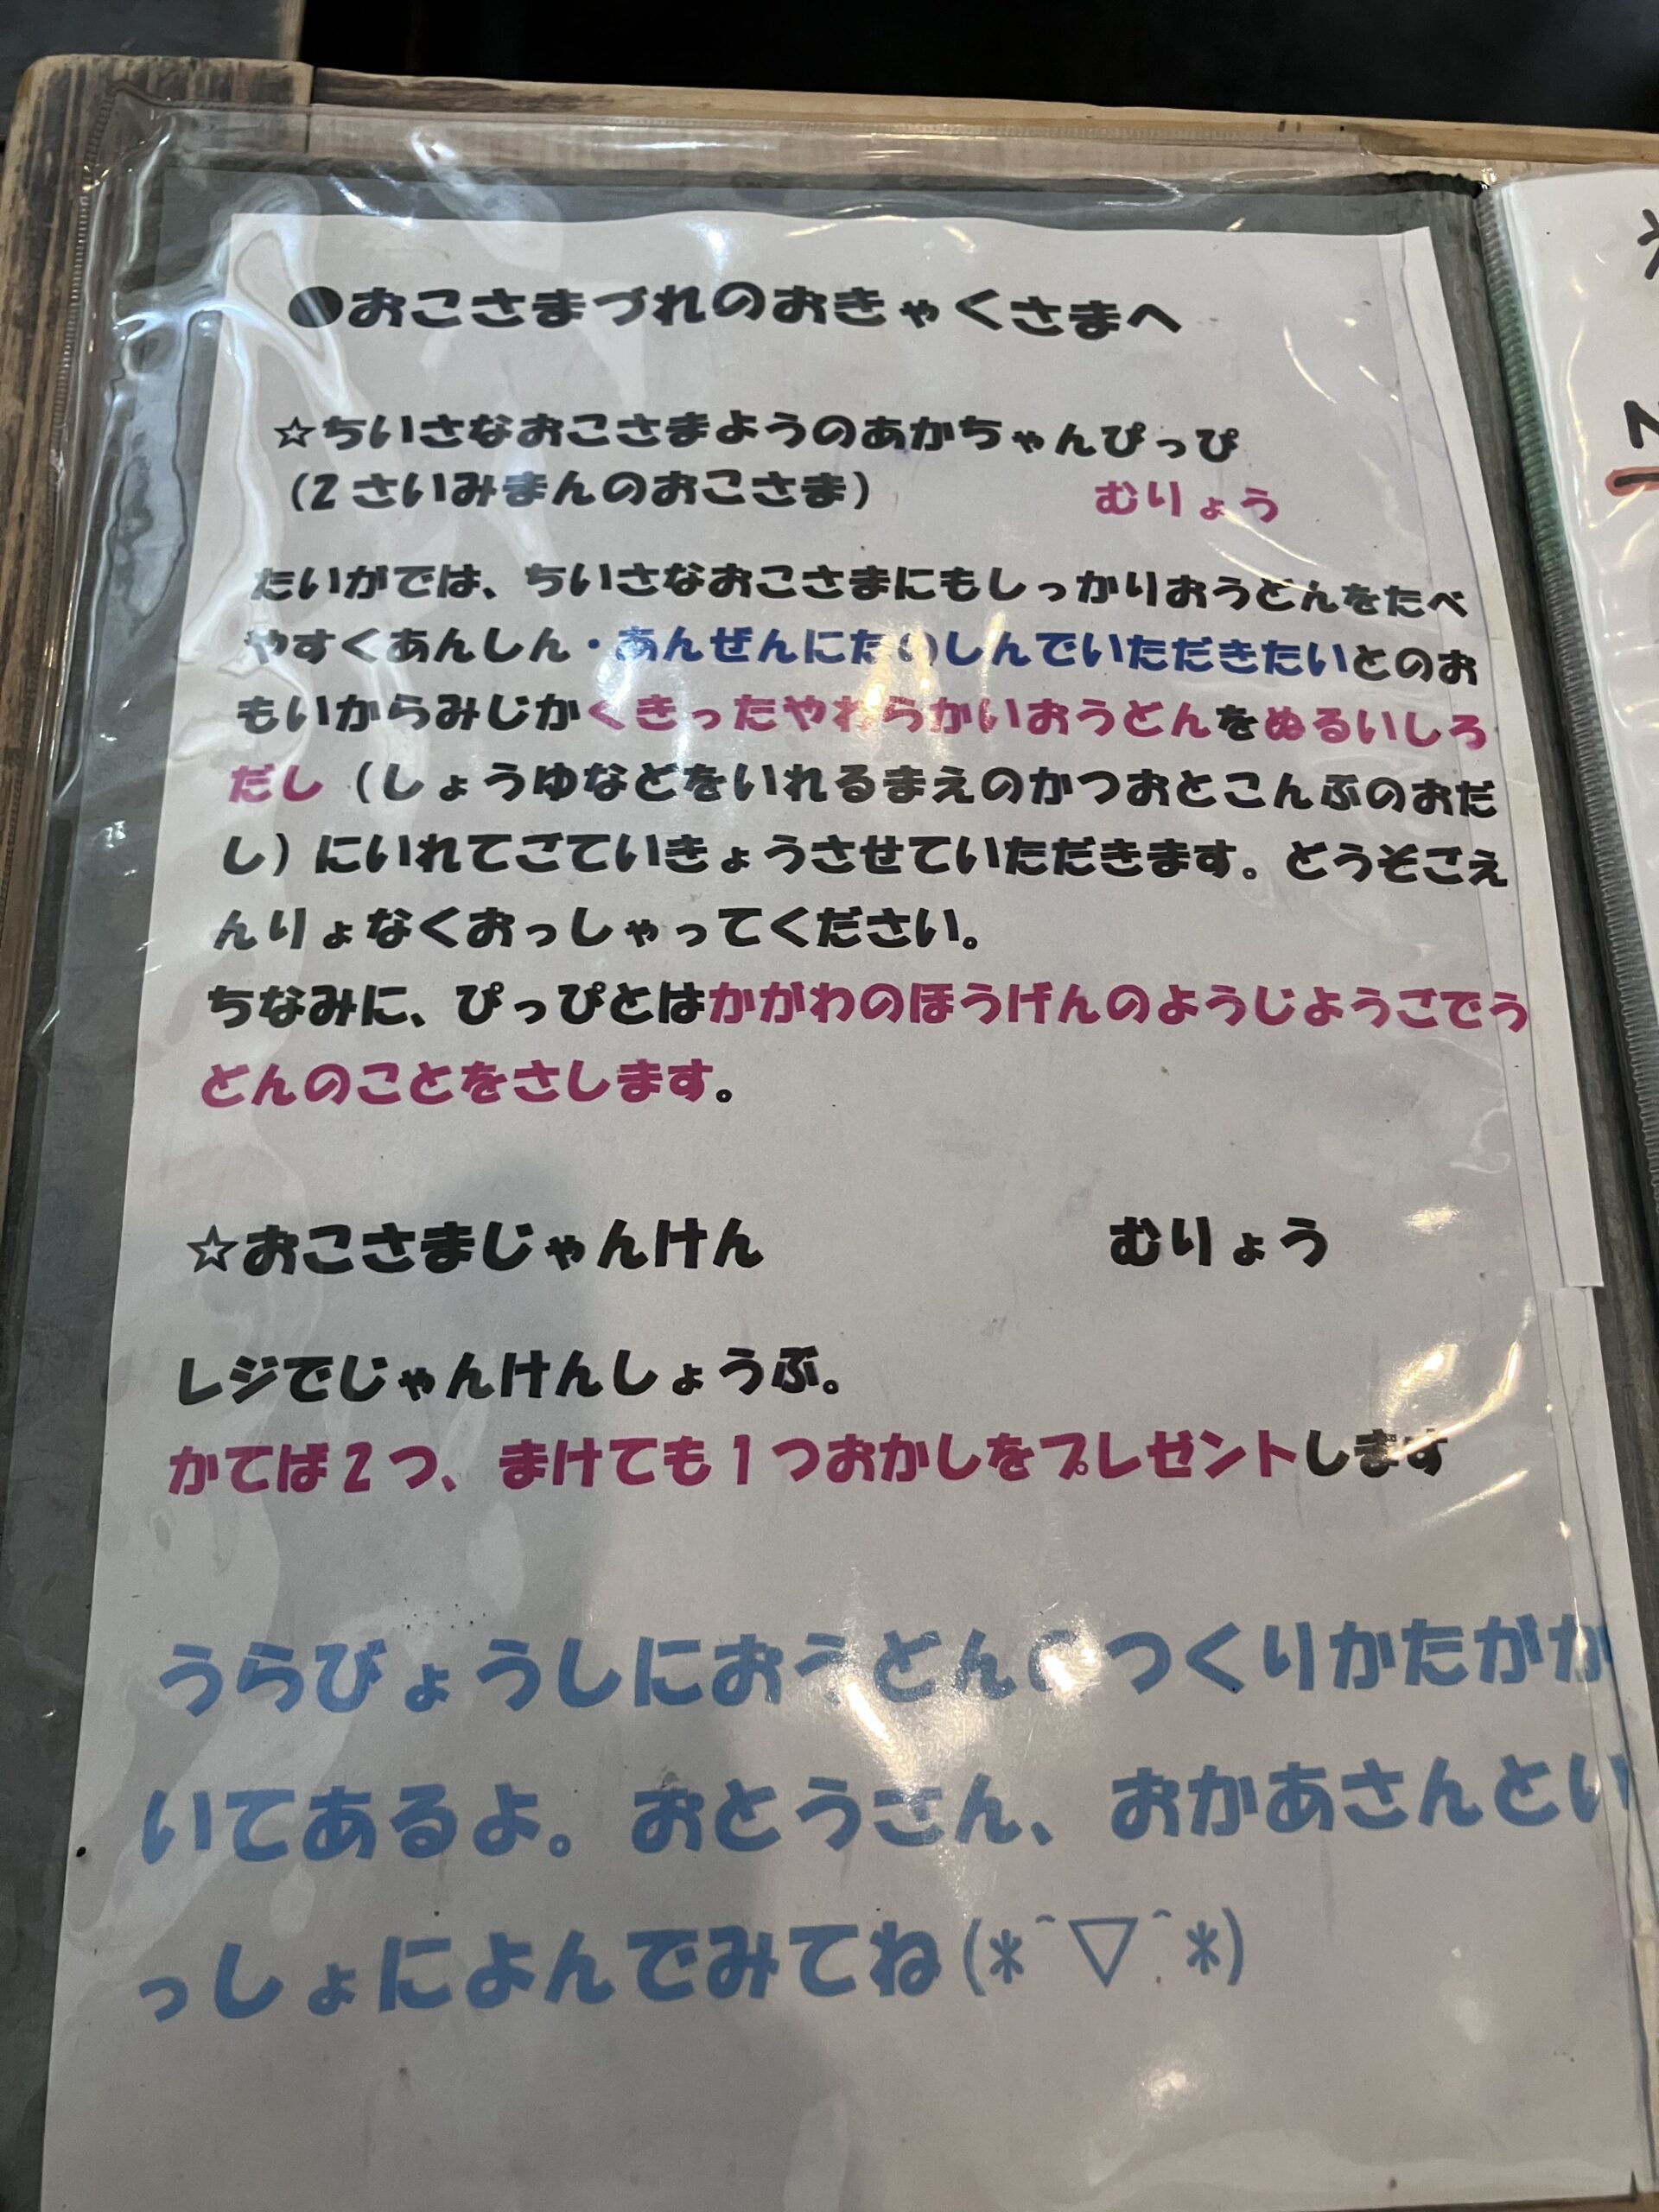 ●おこさまづれのおきゃくさまへ
☆ちいさなおこさまようのあかちゃんぴっぴ
（2さいみまんのおこさま） むりょう
たいがでは、ちいさなおこさまにもしっかりおうどんをたべ
やすくあんしん・あんぜんにたのしんでいただきたいとのお
もいからみじかくきったやわらかいおうどんをぬるいしろ
だし（しょうゆなどをいれるまえのかつおとこんぶのおだ
し）にいれてごていきょうさせていただきます。どうぞごえ
んりょなくおっしゃってください。
ちなみに、ぴっぴとはかがわのほうげんのようじようごでう
どんのことをさします。
☆おこさまじゃんけん むりょう
レジでじゃんけんしょうぶ。
かてば2つ、まけても1つおかしをプレゼントします
うらびょうしにおうどんのつくりかたがか
いてあるよ。おとうさん、おかあさんとい
っしょによんでみてね(*^▽^*)